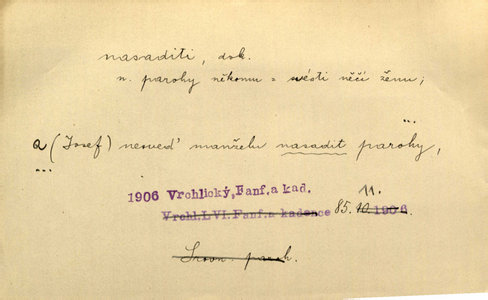 nasaditi, dok.
n. parohy někomu = svésti něčí ženu;
...
a (Josef) nesveď manželu nasadit parohy,
...
1906 Vrchlický, Fanf. a kad. 11.
Vrchl. LVI. Fanf. a kadence 85. 10. 1906.
Srovn. paroh.